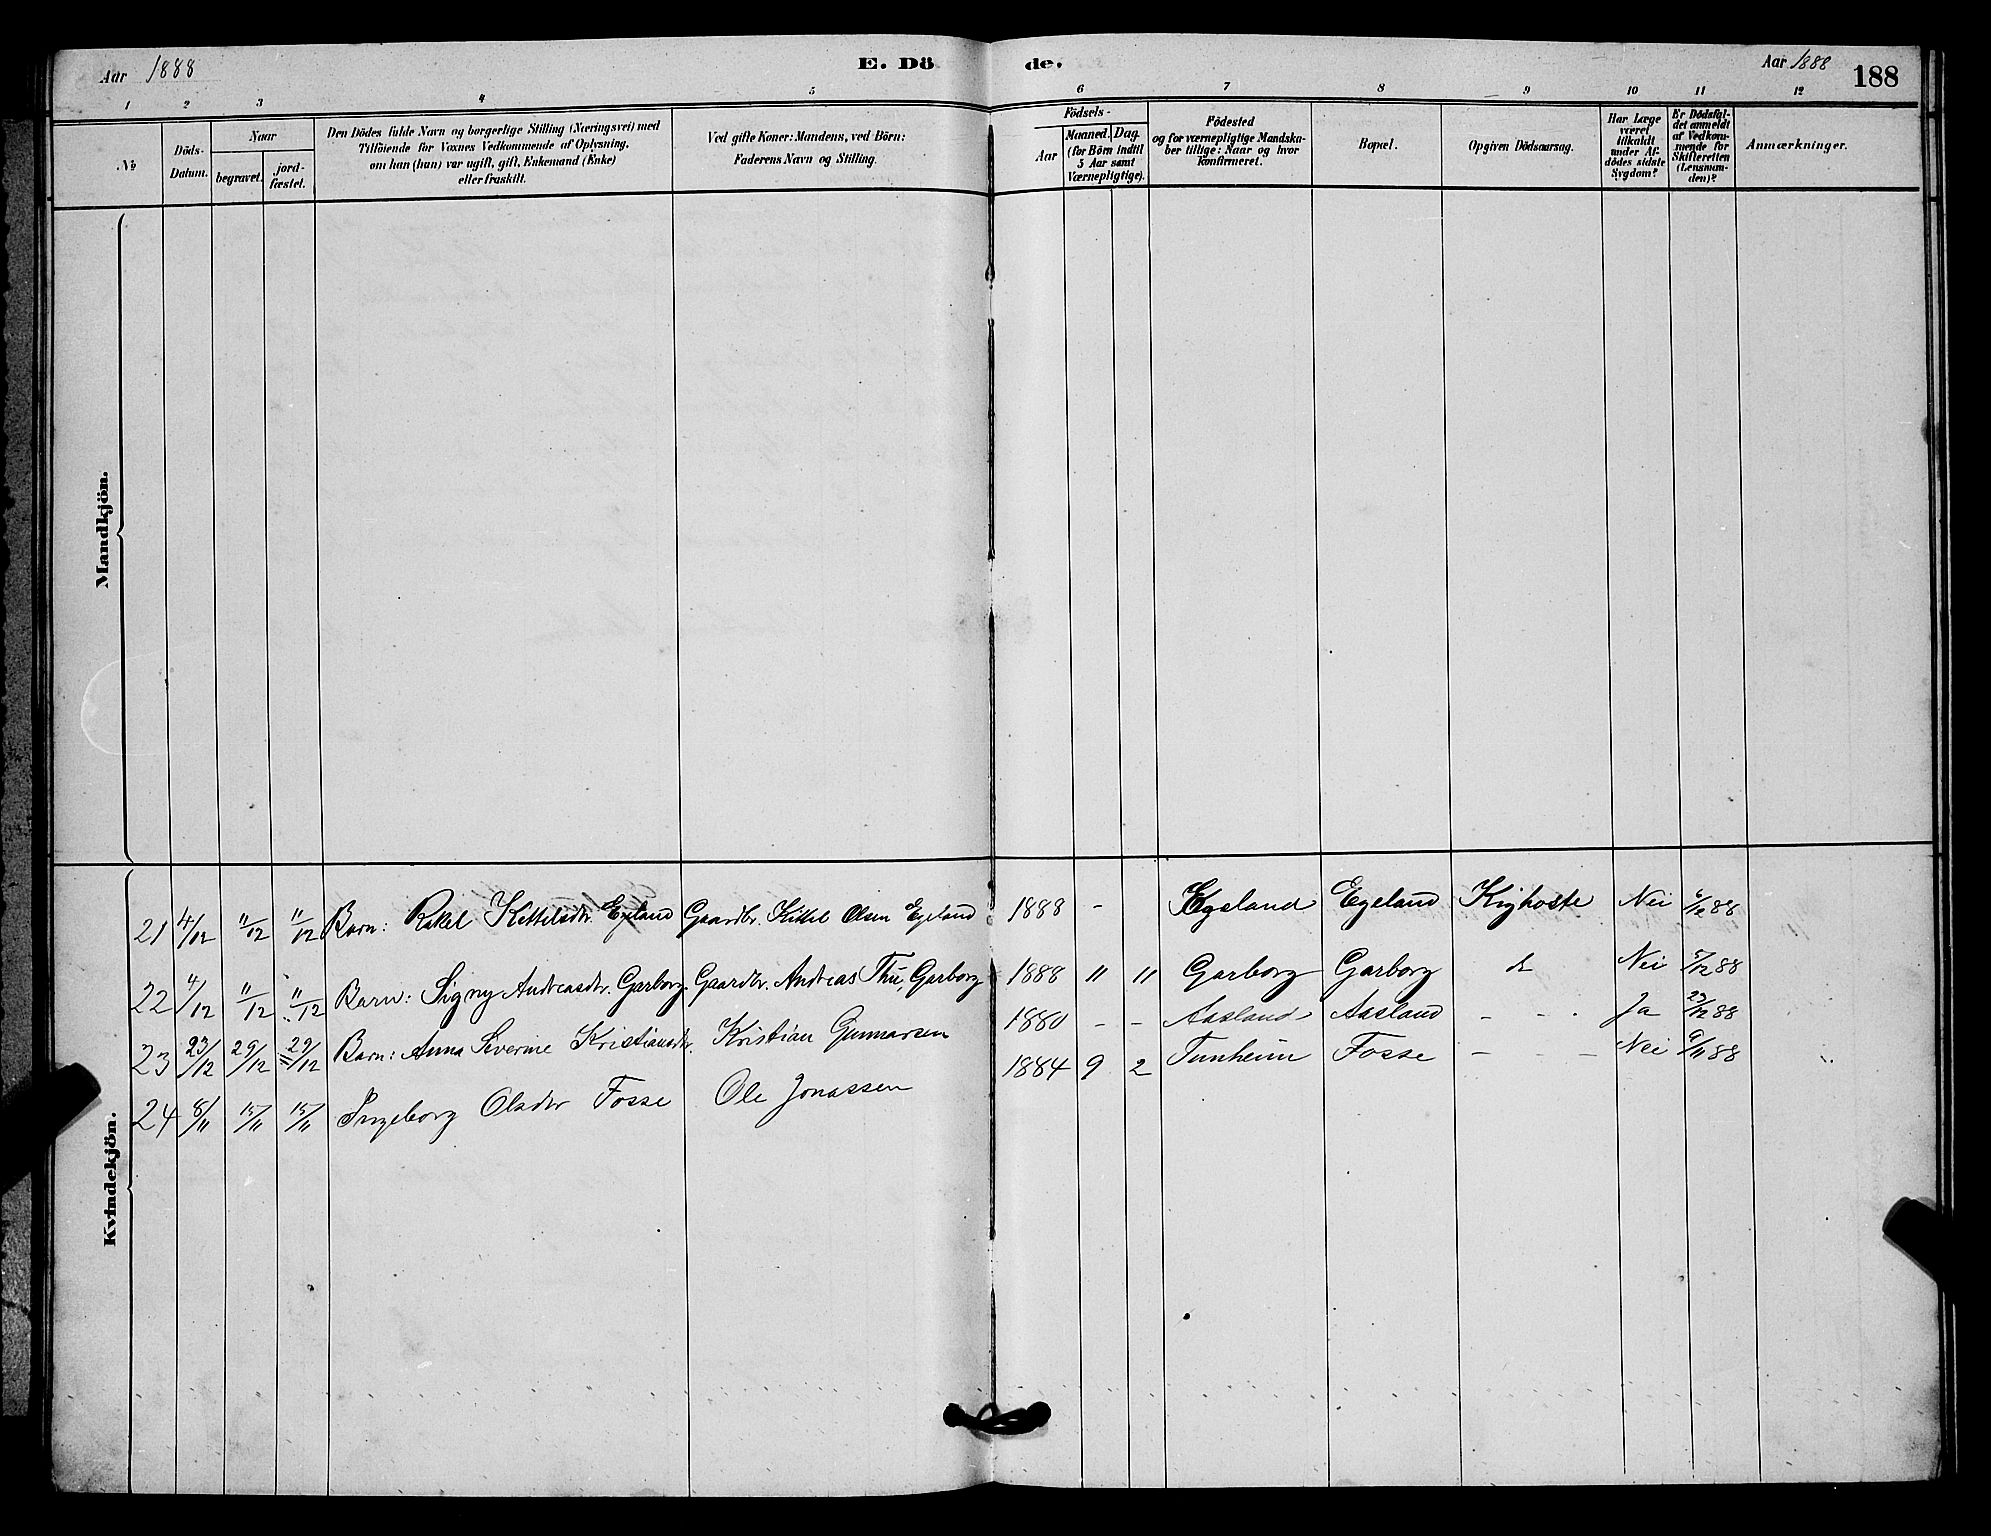 Aar 1888
E. Dö
de.
Aar 1888
188
1 2 3 4 5 6 7 8 9 10 11 12
No
Döds-
Datum.
Naar
begravet.
jord-
fæstet.
Den Dödes fulde Navn og borgerlige Stilling (Næringsvei) med
Tilföiende for Voxnes Vedkommende af Oplysning,
om han (hun) var ugift, gift, Enkemand (Enke)
eller fraskilt.
Ved gifte Koner: Mandens, ved Börn:
Faderens Navn og Stilling.
Födsels-
Aar
Maaned. Dag.
(for Börn indtil
5 Aar samt
Værnepligtige).
Födested
og for værnepligtige Mandska-
ber tillige: Naar og hvor
konfirmeret.
Bopæl.
Opgiven Dödsaarsag.
Har Læge
været
tilkaldt
under Af-
dödes sidste
Sygdom?
Er Dödsfal-
det anmeldt
af Vedkom-
mende for
Skifteretten
(Lensman-
den)?
Anmærkninger.
Mandkjön.
Kvindekjön.
21 4/12 11/12 11/12 Barn: Rakel Kittelsdtr. Egeland Gaardbr. Kittel Olsen Egeland 1888 - Egeland Egeland Kighoste Nei 6/12 88
22 4/12 11/12 11/12 Barn: Signy Andreasdtr. Garborg. Gaardbr. Andreas Thu, Garborg 1888 " " Garborg Garborg Nei 5/12 88
23 23/12 29/12 29/12 Barn: Anna Severine Kristiansdtr. Kristian Gunnarsen 1880 - - Aasland Aasland - - Ja 23/12 88
24 8/11 15/11 15/11 Ingeborg Olsdtr Fosse Ole Jonassen 1884 9 2 Tunheim Fosse - - - Nei 9/11 88